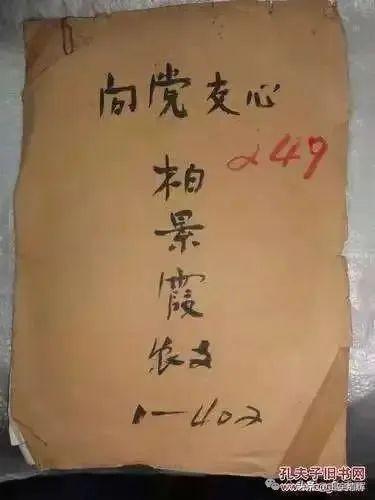 向党交心
249
柏
景
霞
农支
1—402
孔夫子旧书网